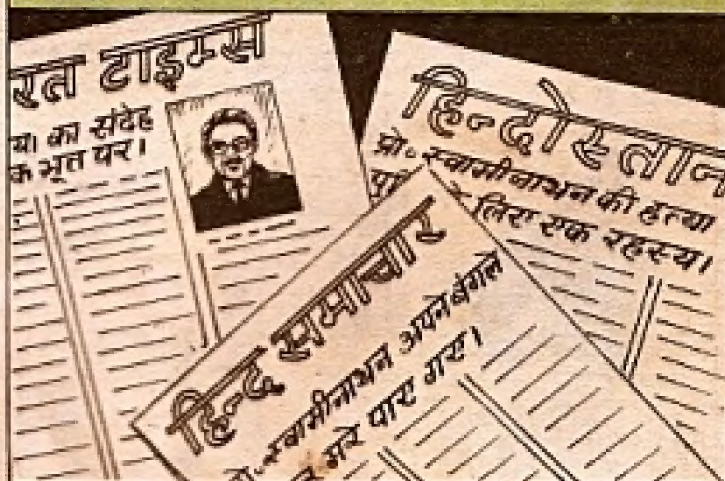 रत टाइम्स
या का संदेह
क भूत पर।
हिन्दोस्तान
प्रो॰ स्वामीनाथन की हत्या
लिए एक रहस्य।
हिन्द समाचार
प्रो॰ स्वामीनाथन अपने बंगले
मरे पाए गए।